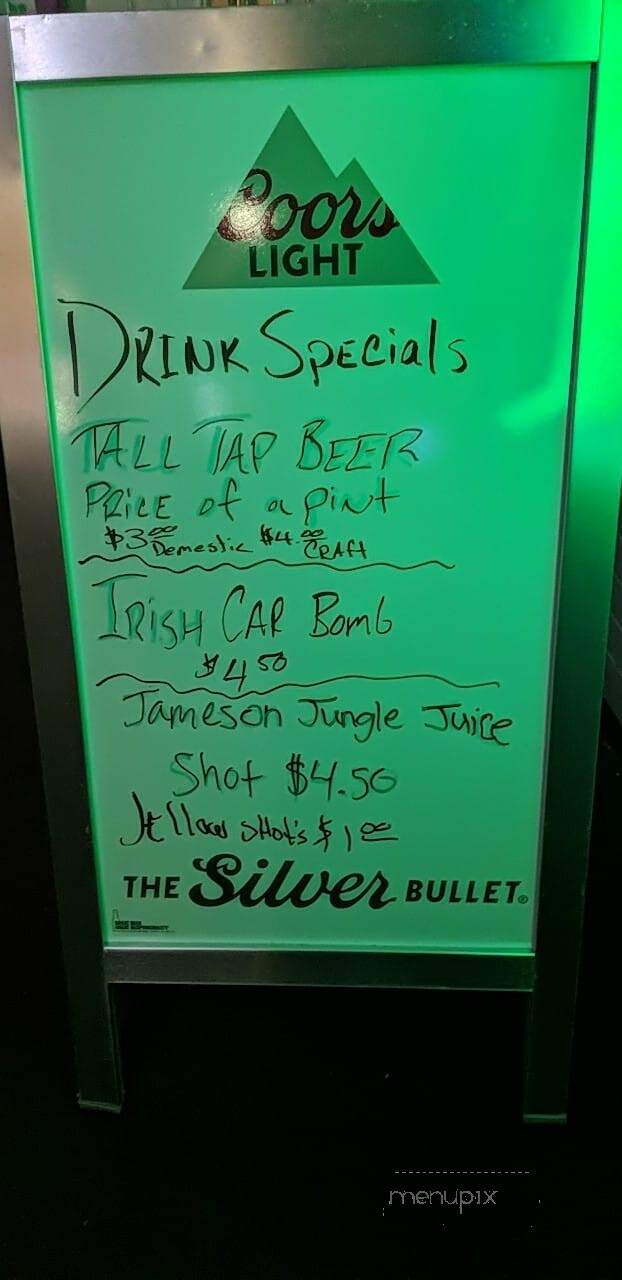 Coors
LIGHT
DRINK SPecials
TALL TAP BEER
PRiCE of a pint
$3.00 Domestic $4.00 CRAft
IRISH CAR Bomb
$4.50
Jameson Jungle Juice
Shot $4.50
Jellow SHot's $1.00
THE Silver BULLET®
menupix